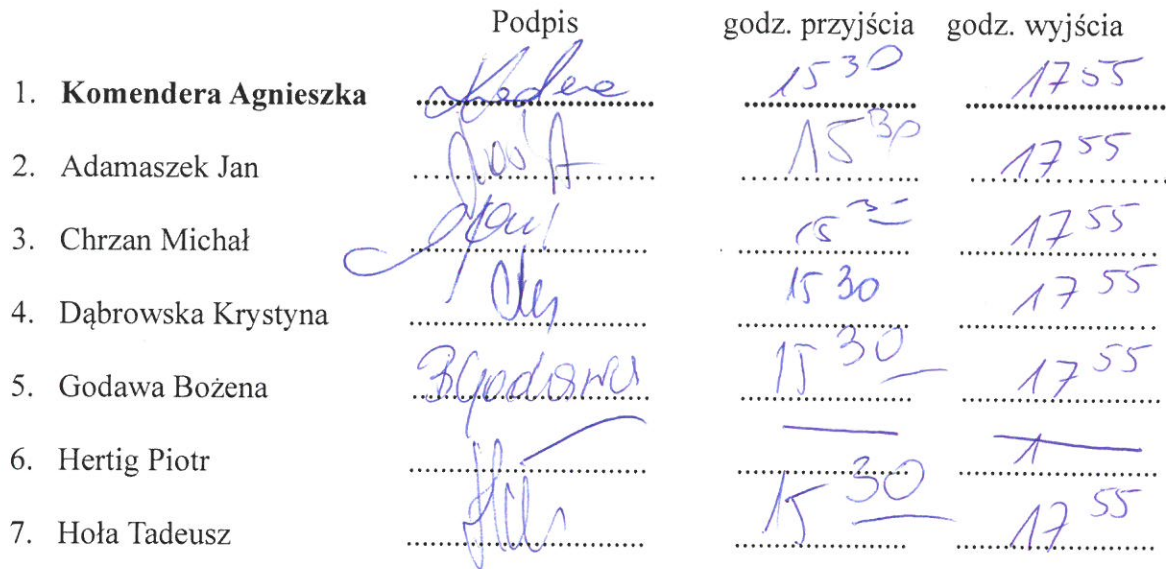 Podpis godz. przyjścia godz. wyjścia
1. Komendera Agnieszka 15 30 17 55
2. Adamaszek Jan 15 30 17 55
3. Chrzan Michał 15 30 17 55
4. Dąbrowska Krystyna 15 30 17 55
5. Godawa Bożena BGodawa 15 30 17 55
6. Hertig Piotr
7. Hoła Tadeusz 15 30 17 55